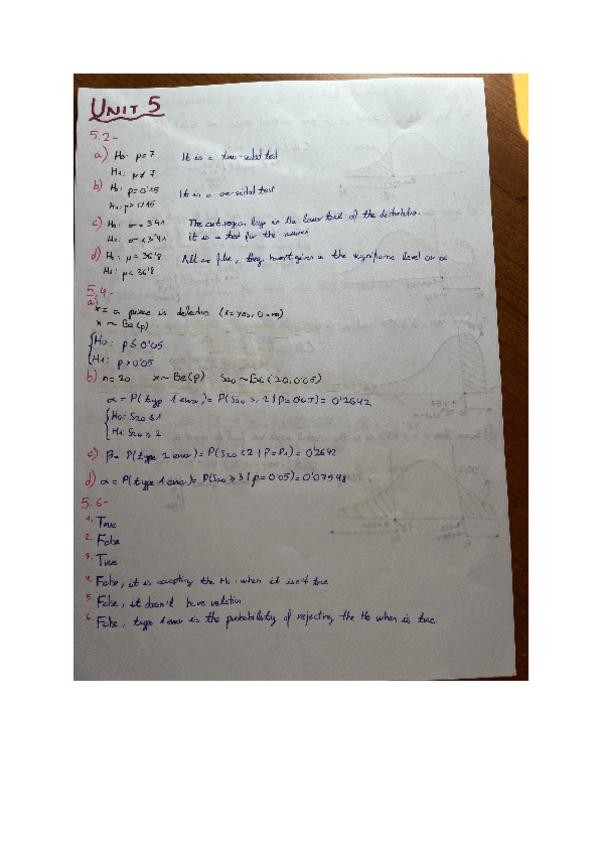 UNIT 5
5.2-
a) H0: μ = 7 It is a two-sided test
H1: μ ≠ 7
b) H0: p = 0'15 It is a one-sided test
H1: p > 0'15
c) H0: σ = 3'41 The critical region lays in the lower tail of the distribution.
H1: σ < 3'41 it is a test for the
d) H0: μ = 36'8 All are false, they haven't given us the significance level or α
H1: μ < 36'8
5.4-
a)
x = a piece is defective (1 = yes, 0 = no)
x ~ Be(p)
H0: p ≤ 0'05
H1: p > 0'05
b) n = 20 x ~ Be(p) S20 ~ Bi(20, 0'05)
α = P(type 1 error) = P(S20 ≥ 2 | p = 0'05) = 0'2642
H0: S20 ≤ 1
H1: S20 ≥ 2
c) β = P(type 2 error) = P(S20 < 2 | P = P1) = 0'2642
d) α = P(type 1 error) = P(S20 ≥ 3 | p = 0'05) = 0'07548
5.6-
1. True
2. False
3. True
4. False, it is accepting the H0 when it isn't true
5. False, it doesn't have relation
6. False, type 1 error is the probability of rejecting the H0 when is true.